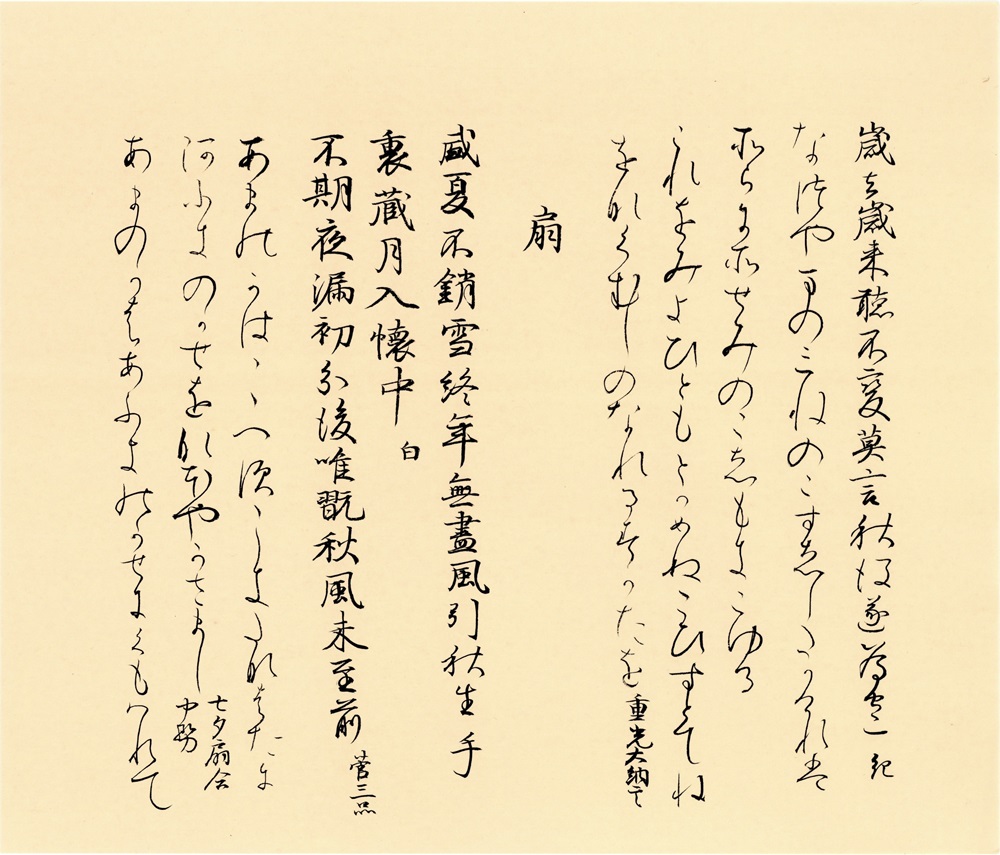 歳去歳来聴不變莫言秋後遂為空 紀
なつやまのみねのこすゑしたかけれは
そらにそせみのこゑもきこゆる
これをみよひともとかめぬこひすとてね
をなくむしのなれるすかたを 重光大納言
扇
盛夏不銷雪終年無盡風引秋生手
裏蔵月入懐中 白
不期夜漏初分後唯翫秋風未至前 菅三品
あまのかはゝゝへすゝしきたなはたに
あふきのかせをなほやかさまし 七夕扇合 中務
あまのかはあふきのかせにくもはれて